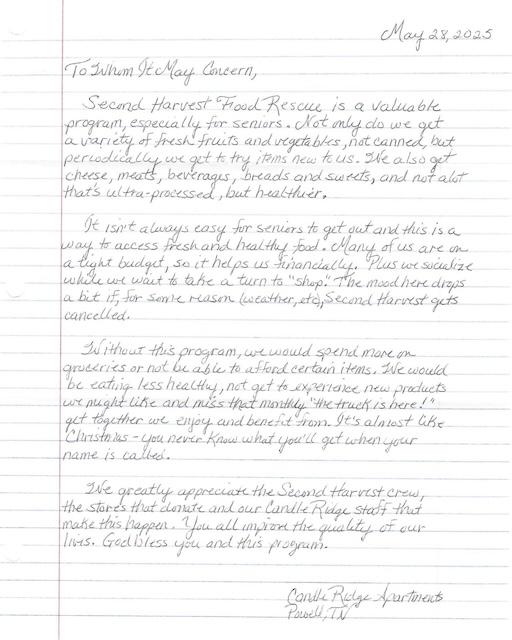 May 28, 2025
To Whom It May Concern,
Second Harvest Food Rescue is a valuable
program, especially for seniors. Not only do we get
a variety of fresh fruits and vegetables, not canned, but
periodically we get to try items new to us. We also get
cheese, meats, beverages, breads and sweets, and not alot
that's ultra-processed, but healthier.
It isn't always easy for seniors to get out and this is a
way to access fresh and healthy food. Many of us are on
a tight budget, so it helps us financially. Plus we socialize
while we wait to take a turn to "shop." The mood here drops
a bit if, for some reason (weather, etc), Second Harvest gets
cancelled.
Without this program, we would spend more on
groceries or not be able to afford certain items. We would
be eating less healthy, not get to experience new products
we might like and miss that monthly "the truck is here!"
get together we enjoy and benefit from. It's almost like
Christmas - you never know what you'll get when your
name is called.
We greatly appreciate the Second Harvest crew,
the stores that donate and our Candle Ridge staff that
make this happen. You all improve the quality of our
lives. God bless you and this program.
Candle Ridge Apartments
Powell, TN